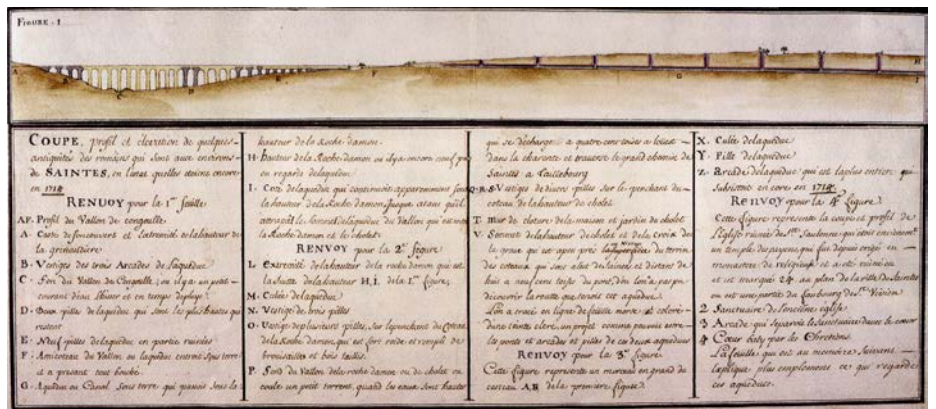 FIGURE . I
A
B
C
D
E
F
G
H
I
COUPE, profil et élévation de quelques
antiquités des romains qui sont aux environs
de SAINTES, en l'état quelles etoient encore
en 1714
RENVOY pour la 1re feuille
AF. Profil du Vallon de
A. Coste de et Extremité de la hauteur de
la grenaudière
B. Vestiges des trois Arcades de l'aqueduc
C. Fon du Vallon de ou il y a un petit
courant d'eau l'hiver et en temps de pluye
D. Deux pilles de laqueduc qui sont les plus hautes qui
restent
E. Neuf pilles de laqueduc en partie ruinées
F. du Vallon ou laqueduc entroit sous terre
et a présent tout
G. Aqueduc ou Canal sous terre qui
hauteur de la Roche damon
H. Hauteur de la Roche damon ou il y a encore neuf
ou regards de laqueduc
I. Coté de laqueduc qui continuoit apparemment sous
la hauteur de la Roche damon jusque a ce qu'il
attrapât le sommet de laqueduc du Vallon qui est entre
la Roche damon et le cholet
RENVOY pour la 2e figure
L. Extremité de la hauteur de la roche damon qui est
la suitte de la hauteur H,I. de la 1re figure,
M. Culée de laqueduc
N. Vestige de trois pilles
O. Vestige de plusieurs pilles, sur le penchant du Coteau
de la Roche damon, qui est fort raide et rempli de
brouissailles et bois taillis
P. Fond du Vallon de la roche damon ou de cholet ou
coule un petit torrent, quand les eaux sont hautes
qui se décharge a quatre cens toises
dans la charente et traverse le grand chemin de
Saintes a Taillebourg
Q.R.S. Vestiges de divers pilles sur le penchant du
coteau de la hauteur de cholet
T. mur de cloture de la maison et jardin de cholet
V. Sommet de la hauteur de cholet et de la croix de
la qui est apeu près du terrein
des coteaux qui sont autour de Saintes et distant de
huit a neuf cens toises du pont, d'ou l'on a pas pu
découvrir la routte que tenoit cet aqueduc
L'on a tracé en ligne de
RENVOY pour la 3e figure
Cette figure represente un morceau en grand du
A.B. de la premiere figure
X. Culée de laqueduc
Y. Pille de laqueduc
Z. Arcade de laqueduc qui est la plus entiere qui
subsistent encore en 1714
RENVOY pour la 4e figure
Cette figure represente la coupe et profil de
l'Eglise ruinée de Ste Saulonne qui étoit anciennement
un temple des payens qui fut depuis erigé en
monastere de religieux et a eté ruiné
et est marqué 24 au plan de la ville de Saintes
en une partie du fauxbourg de St Vivien
2 Sanctuaire de l'ancienne eglise
3 Arcade qui separoit le Sanctuaire davec le coeur
4 Coeur baty par les Chretiens
La feuille qui est au
explique plus amplement ce qui regarde
ces aqueducs